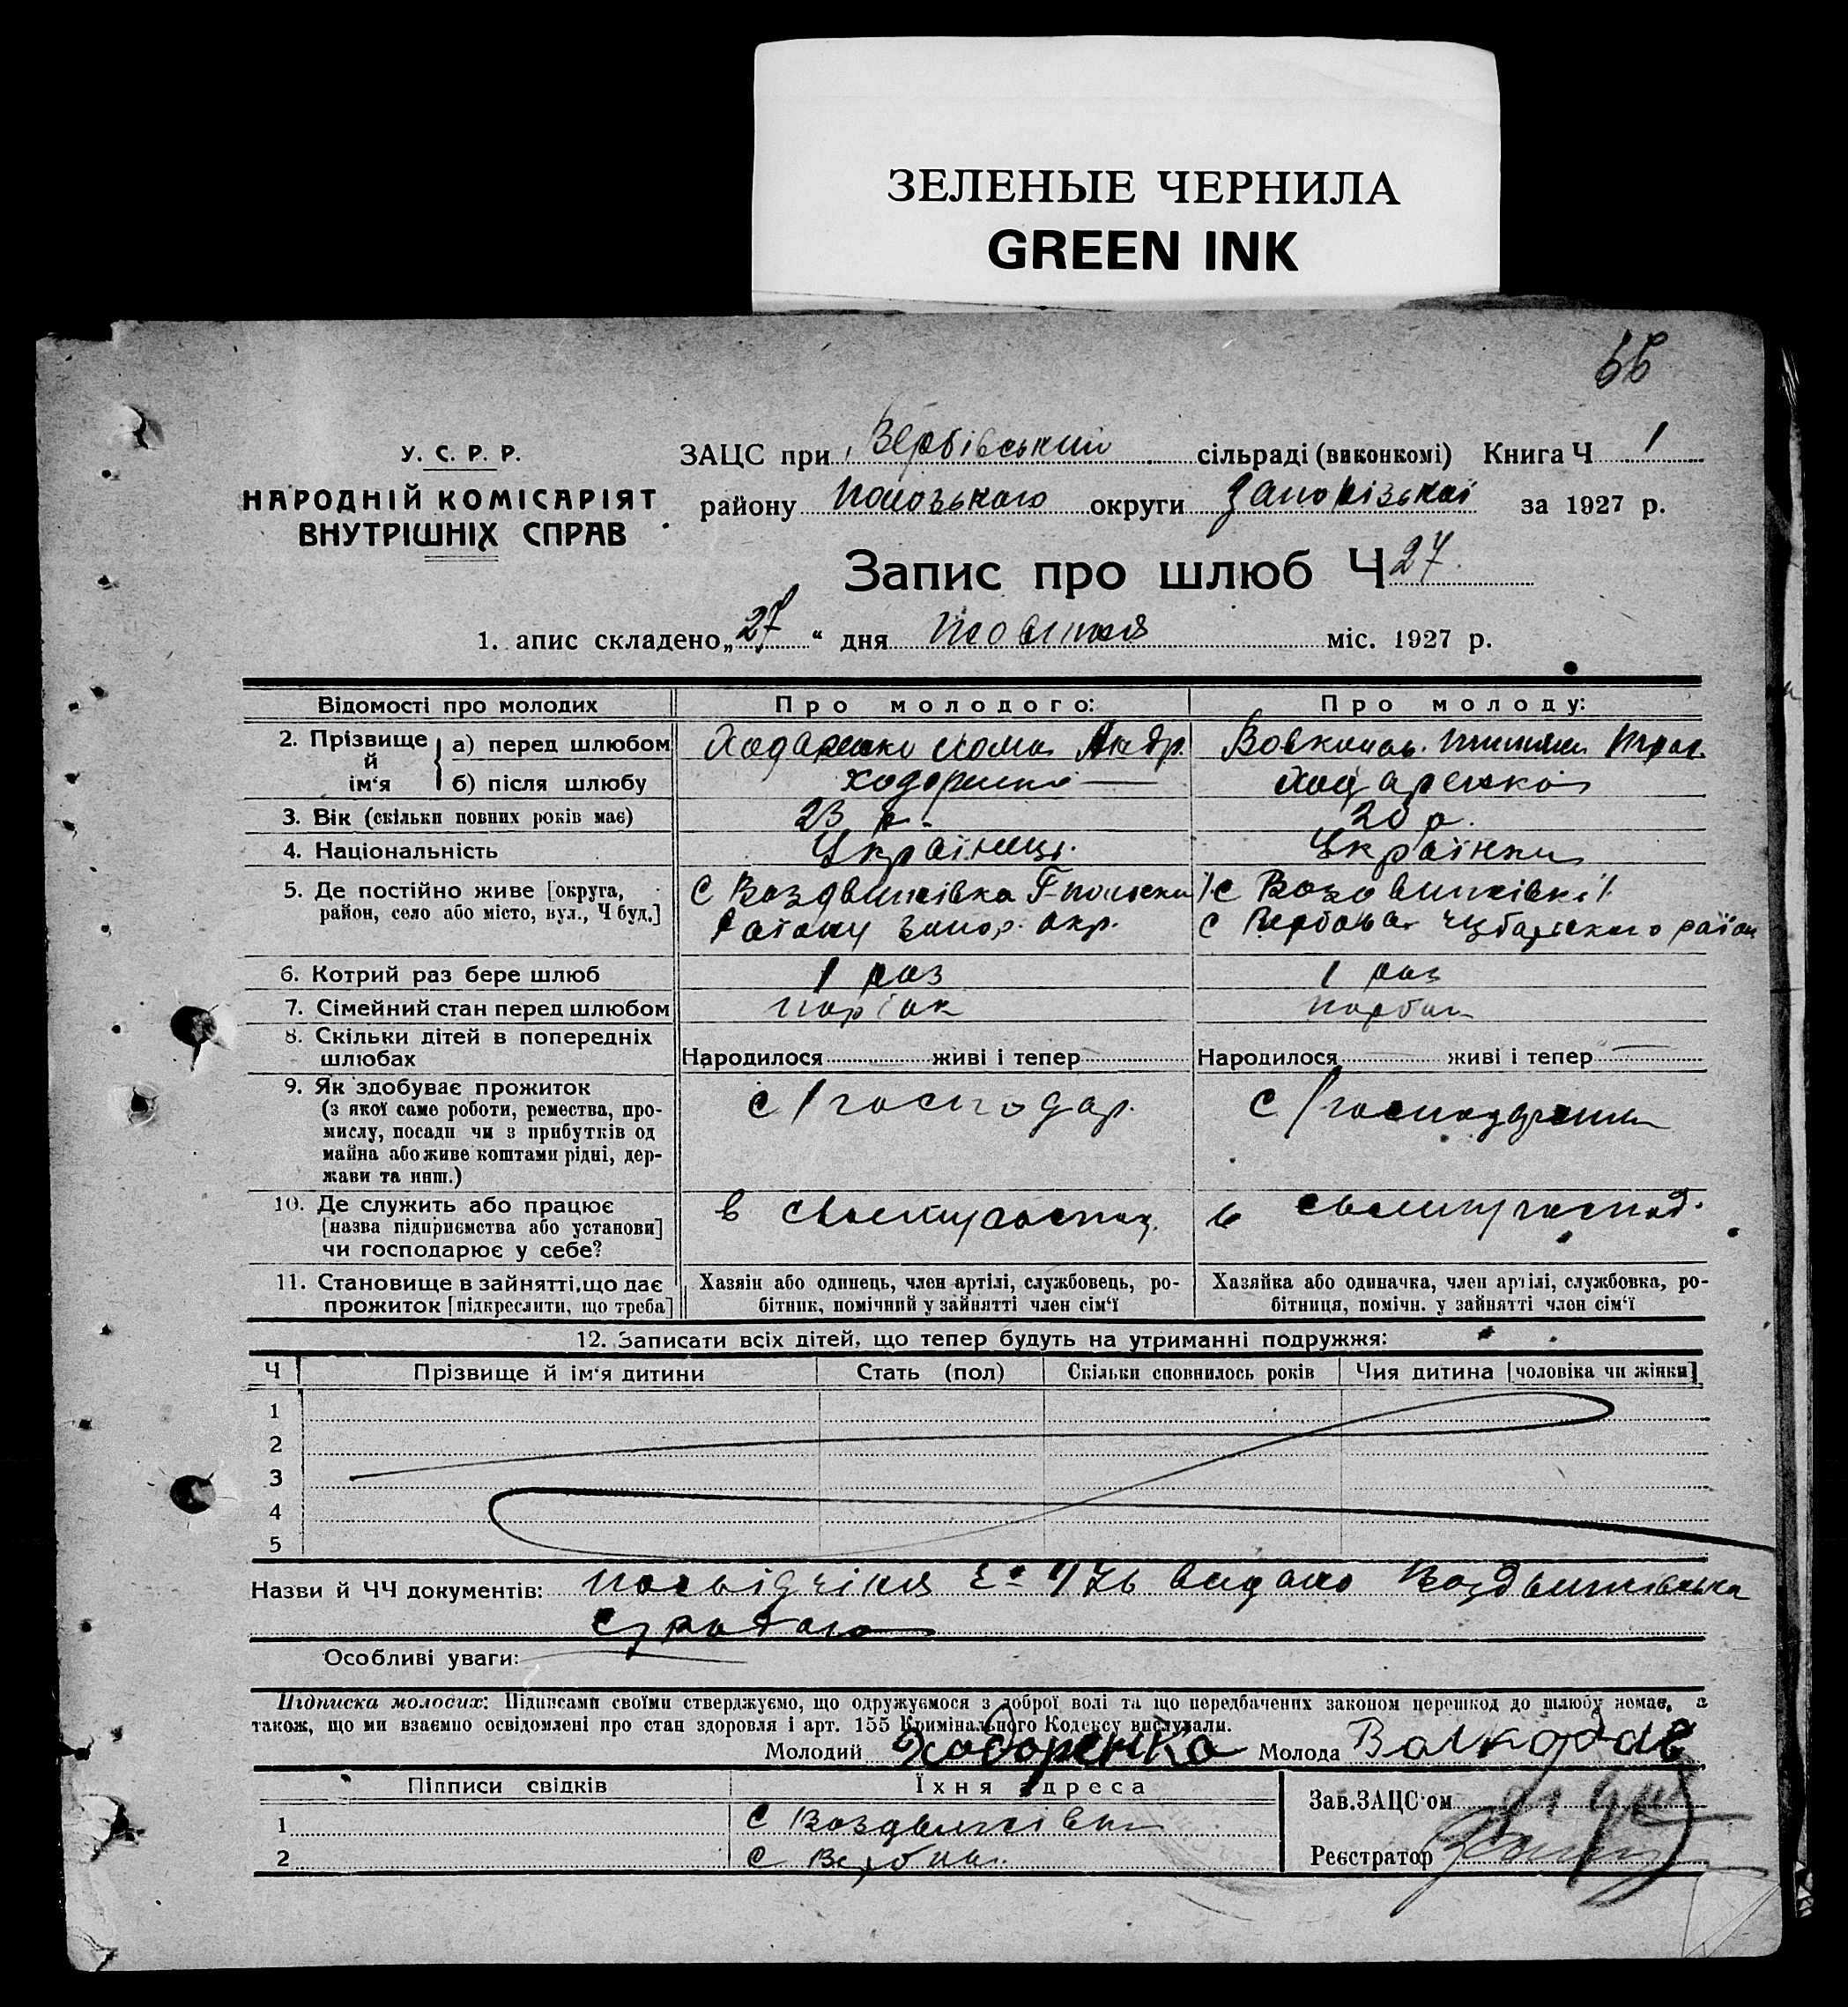 ЗЕЛЕНЫЕ ЧЕРНИЛА
GREEN INK
66
У. С. Р. Р.
НАРОДНІЙ КОМІСАРІЯТ
ВНУТРІШНІХ СПРАВ
ЗАЦС при Вербівський сільраді (виконкомі) Книга Ч 1
району Пологського округи Запорізької за 1927 р.
Запис про шлюб Ч 27.
1. апис складено „27“ дня жовтня міс. 1927 р.
Відомості про молодих Про молодого: Про молоду:
2. Прізвище й ім'я а) перед шлюбом Ходаренко Хома Андр.
б) після шлюбу Ходоренко Ходаренко
3. Вік (скільки повних років має) 23 р. 20 р.
4. Національність Українець Українка
5. Де постійно живе [округа, район, село або місто, вул., Ч буд.] С Воздвижівка С Воздвижівкі
району Запор. окр. С Вербова Чубарского район
6. Котрий раз бере шлюб 1 раз 1 раз
7. Сімейний стан перед шлюбом
8. Скільки дітей в попередніх шлюбах Народилося живі і тепер Народилося живі і тепер
9. Як здобуває прожиток с/господар. с/господарка
(з якої саме роботи, ремества, про-
мислу, посади чи з прибутків од
майна або живе коштами рідні, дер-
жави та инш.)
10. Де служить або працює в своему господ. в своему господ.
[назва підприємства або установи]
чи господарює у себе?
11. Становище в зайнятті, що дає прожиток [підкреслити, що треба] Хазяін або одинець, член артілі, службовець, ро- Хазяйка або одиначка, член артілі, службовка, ро-
бітник, помічний у зайнятті член сім'ї бітниця, помічн. у зайнятті член сім'ї
12. Записати всіх дітей, що тепер будуть на утриманні подружжя:
Ч Прізвище й ім'я дитини Стать (пол) Скільки сповнилось років Чия дитина [чоловіка чи жінки]
1
2
3
4
5
Назви й ЧЧ документів: видано Воздвижівська
с/радою
Особливі уваги:
Підписка молодих: Підписами своїми стверджуємо, що одружуємося з доброї волі та що передбачених законом перешкод до шлюбу немає, а
також, що ми взаємно освідомлені про стан здоровля і арт. 155 Кримінального Кодексу вислухали.
Молодий Ходоренко Молода Волкодав
Підписи свідків Їхня адреса Зав.ЗАЦС'ом
1 С Воздвижівка
2 С Вербова Реєстратор